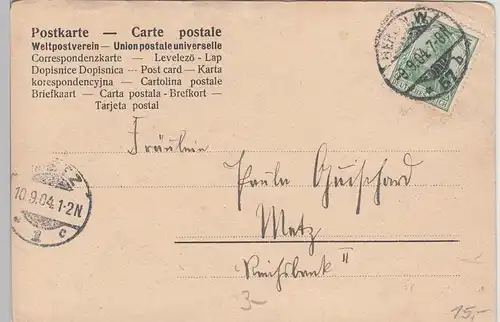 Postkarte — Carte postale
Weltpostverein — Union postale universelle
Correspondenzkarte — Levelező - Lap
Dopisnice Dopisnica — Post card — Karta
korespondencyjna — Cartolina postale
Briefkaart — Carta postala - Brefkort —
Tarjeta postal
BERLIN. W.
9.9.04. 7-8
* 57 b
Fräulein
Paula Guischard
Metz
Reichsbank II
METZ
10.9.04. 1-2N
* 2 c
3-
15,-